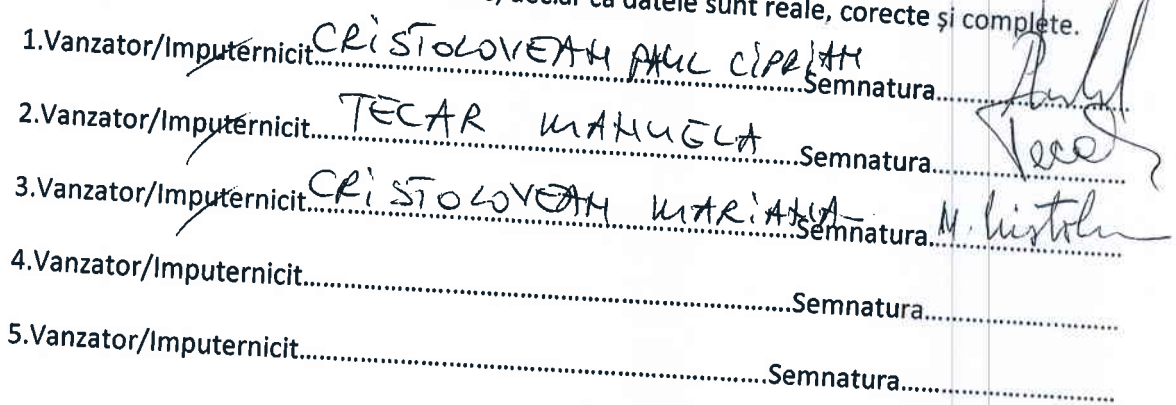 declar că datele sunt reale, corecte și complete.
1.Vanzator/Imputernicit CRISTOLOVEAN PAUL CIPRIAN Semnatura
2.Vanzator/Imputernicit TECAR MANUELA Semnatura
3.Vanzator/Imputernicit CRISTOLOVEAN MARIANA Semnatura M. Cristolov
4.Vanzator/Imputernicit Semnatura
5.Vanzator/Imputernicit Semnatura